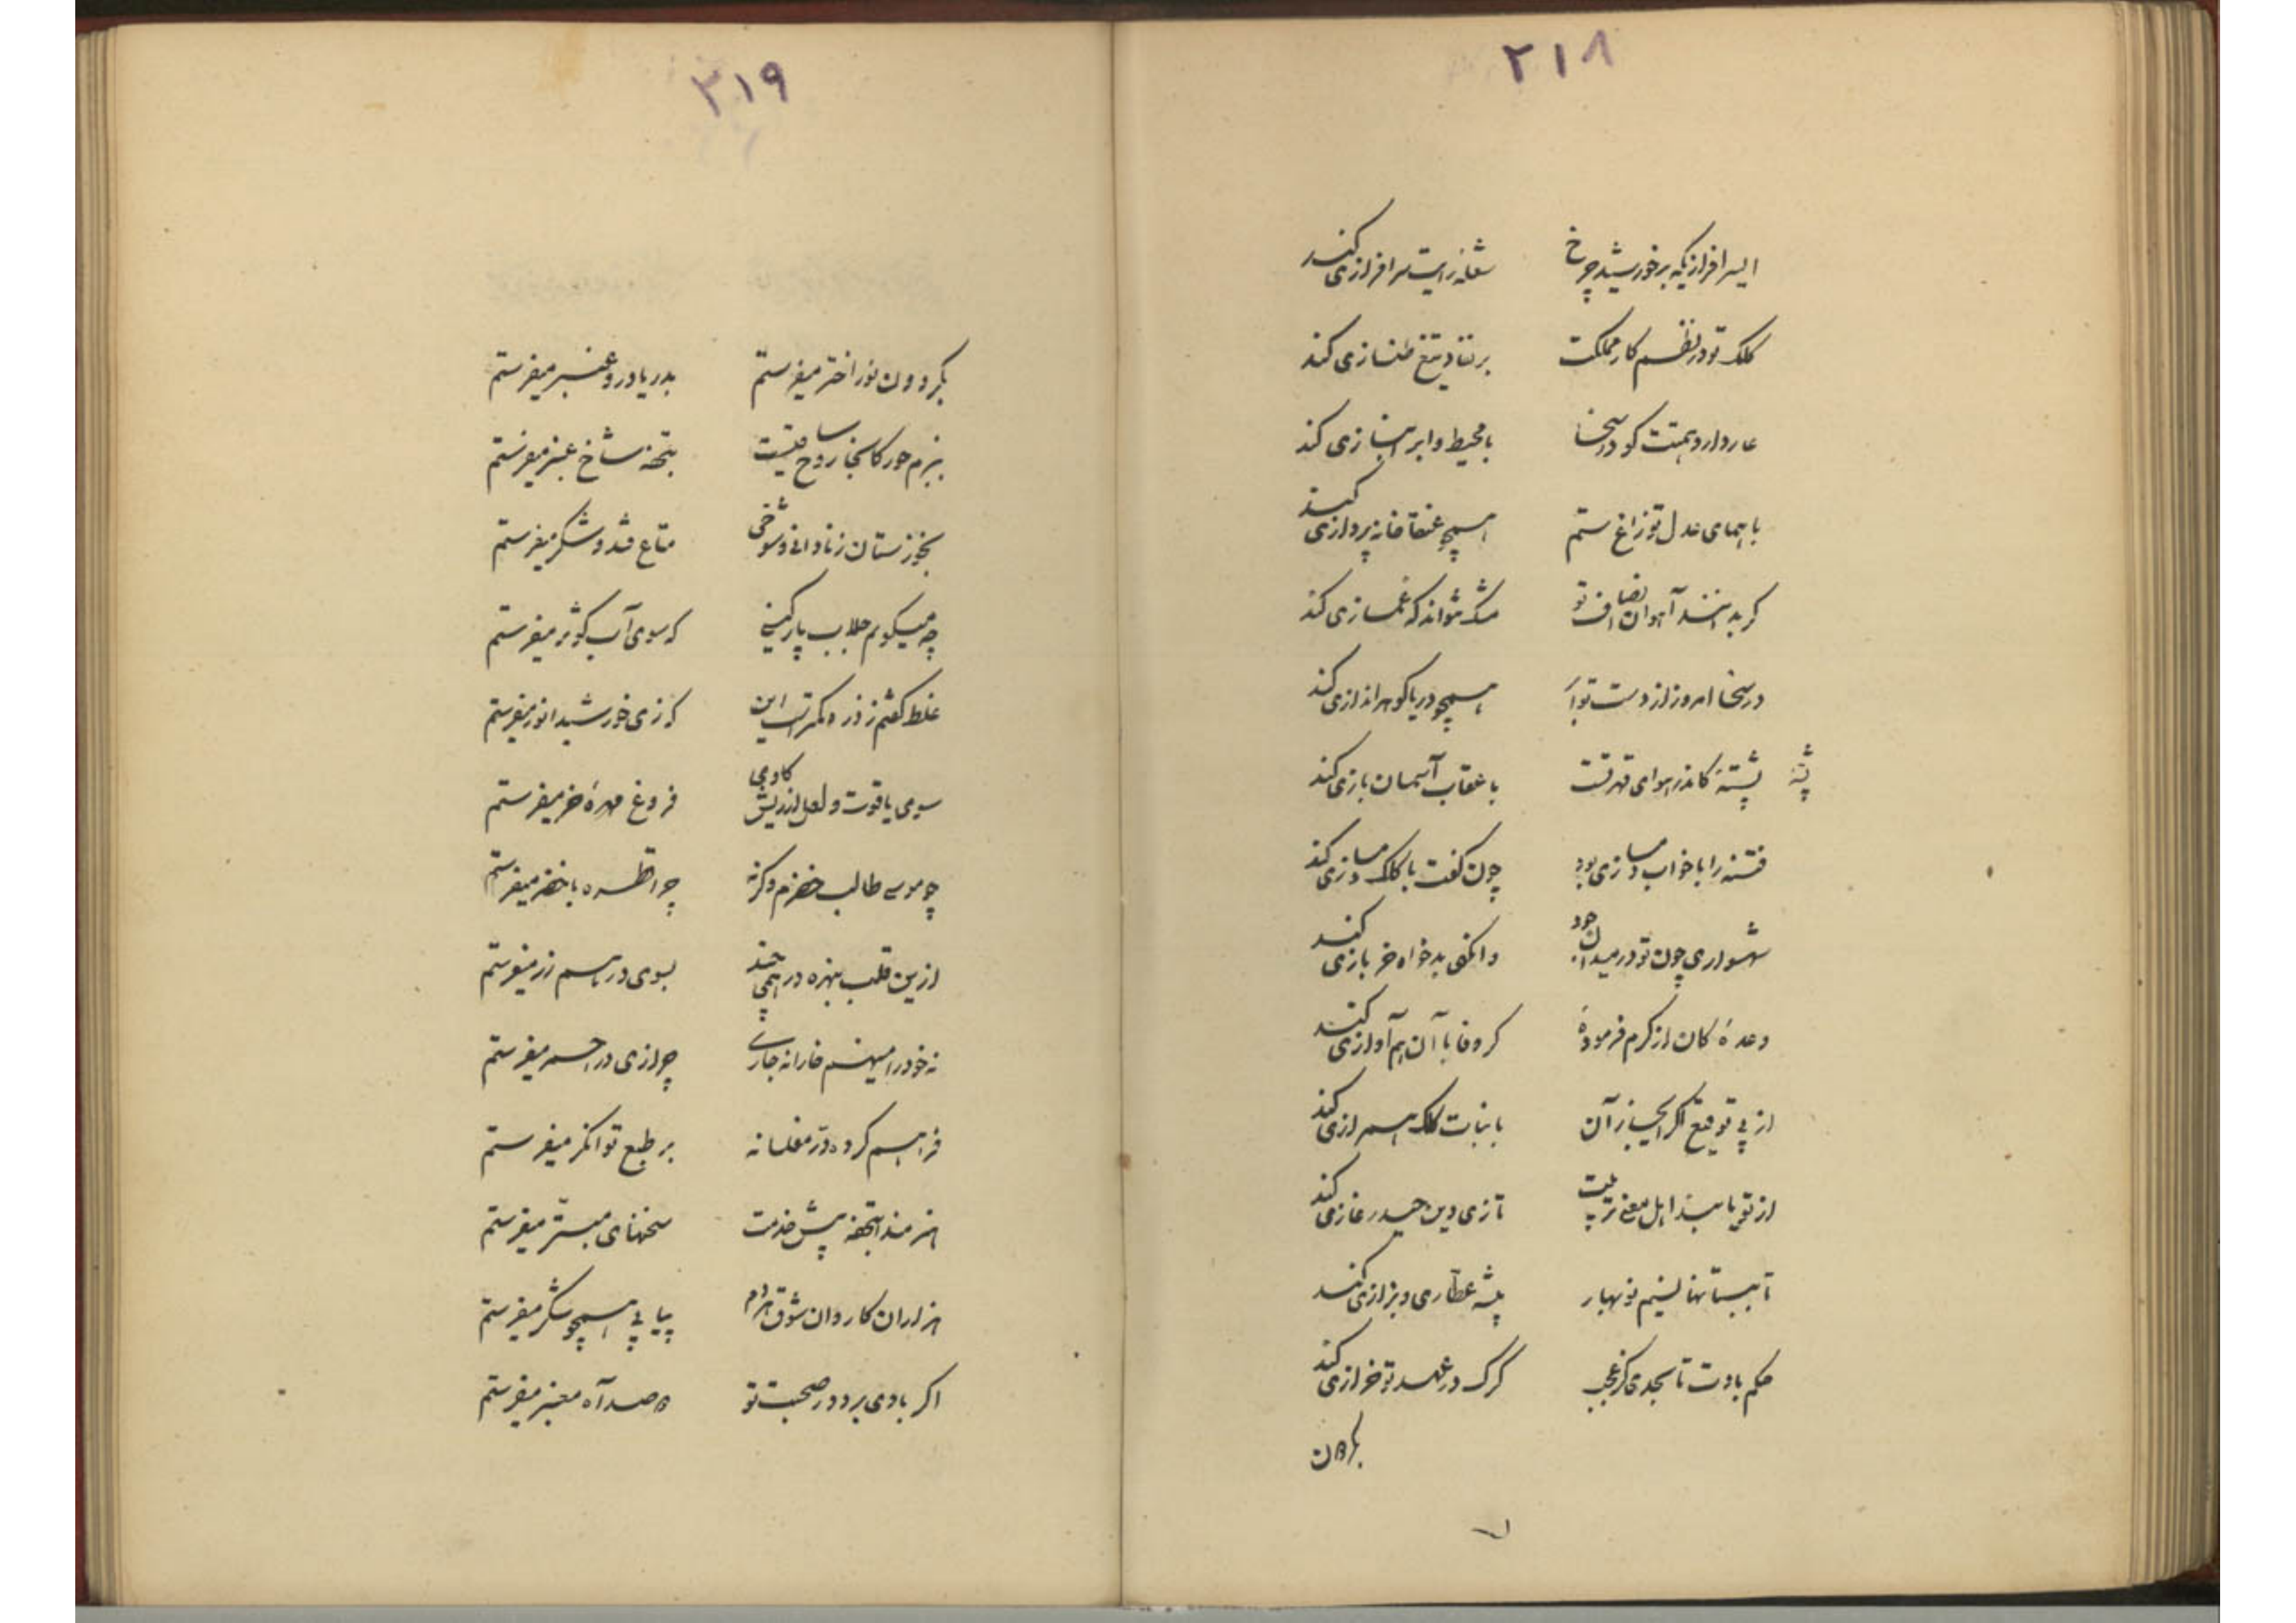 ۲۱۸
ای سرافرازیکه بر خورشید چرخ شعله رایت سرافرازی کند
کلک تو در نظم کار مملکت بر تیغ طنازی کند
عار دارد همتت کو در سخا با محیط و ابر انبازی کند
با همای عدل تو زاغ ستم همچو عنقا خانه پردازی کند
کر بد آهوان انصاف تو مشک نتواند که غمازی کند
در سخا امروز از دست تو ابر همچو دریا کوهر اندازی کند
پشته کاندر هوای قهر تست با عقاب آسمان بازی کند
پشه
فتنه را با خواب دمسازی بود چون کفت با کلک دمسازی کند
شهسواری چون تو در میدان جود وانکهی بدخواه خر بازی کند
وعده کان از کرم فرموده کر وفا با آن هم آوازی کند
از پی توقیع اکر آن با بنات کلک همرازی کند
از تو یابند اهل معنی تربیت تازی دین حیدر غازی کند
تا ببستانها نسیم نوبهار پیشه عطاری و بزازی کند
حکم بادت تا بجدی کز عجب کرک در عهد تو خرازی کند
بکردون
۲۱۹
بکردون نور اختر میفرستم بدریا در و عنبر میفرستم
ببزم حور کانجا روح ساقیست بتحفه شاخ عنبر میفرستم
بخوزستان ز نادانی و شوخی متاع قند و شکر میفرستم
چه میکویم جلاب پارکینی که سوی آب کوثر میفرستم
غلط کفتم ز ذره کمترست این که زی خورشید انور میفرستم
سوی یاقوت و لعل از ریش کاوی فروغ مهره خر میفرستم
چو موسی طالب خضرم وکرنه چرا قطره با خضر میفرستم
ازین قلب بهره در همی چند بسوی در هم زر میفرستم
نه خود را میهنم خارانه جاری چرا زی در احمر میفرستم
فراهم کرده در مفلسانه بر طبع توانکر میفرستم
هنرمندا بتحفه پیش خدمت سخنهای مبتر میفرستم
هزاران کاروان شوق هر دم پیاپی همچو شکر میفرستم
اکر بادی برد در صحبت تو صد آه معنبر میفرستم